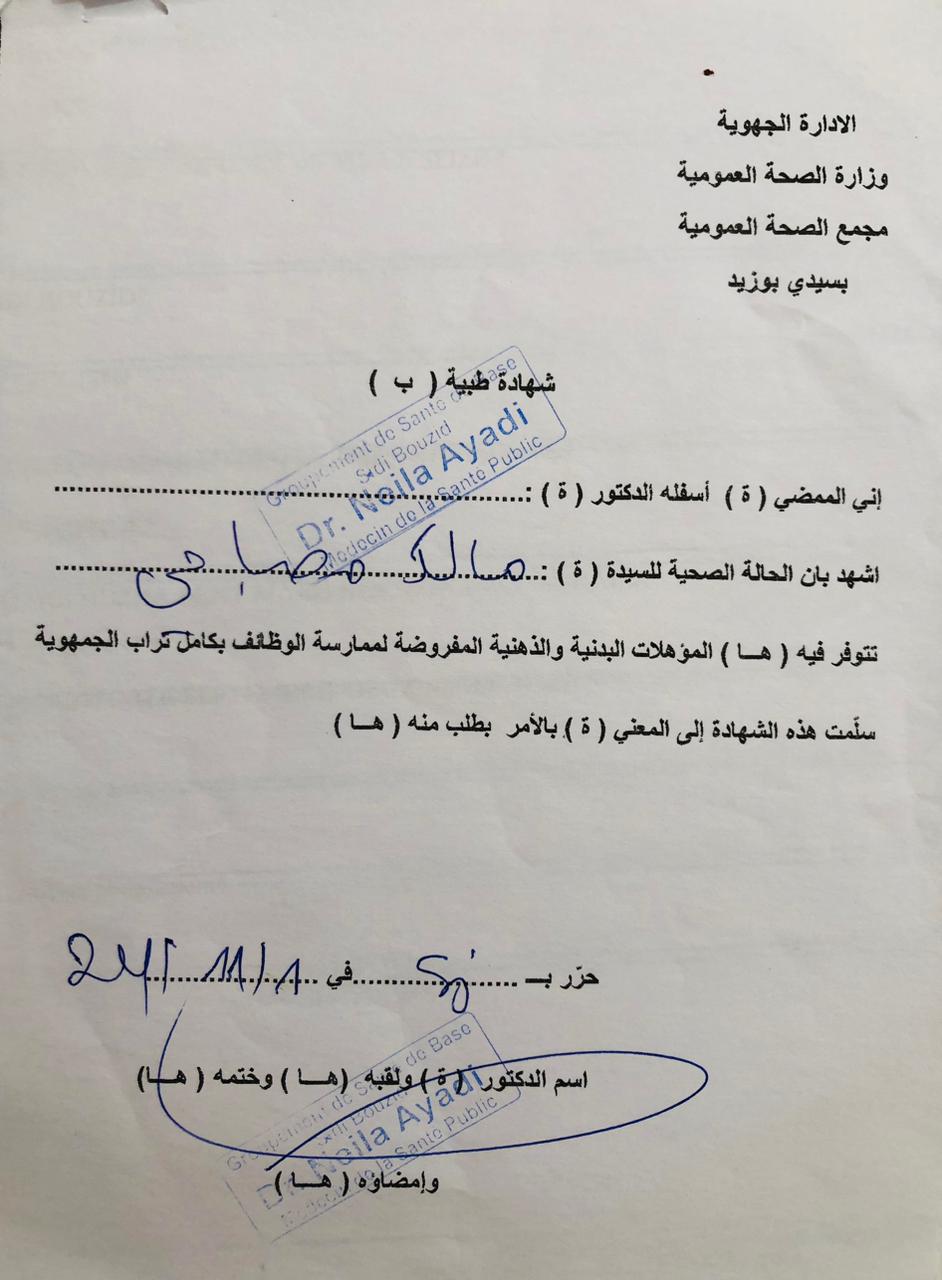 الادارة الجهوية
وزارة الصحة العمومية
مجمع الصحة العمومية
بسيدي بوزيد
شهادة طبية ( ب )
Groupement de Sante de Base
Sidi Bouzid
Dr. Neila Ayadi
Medecin de la Santé Public
إني الممضي ( ة ) أسفله الدكتور ( ة ) :
اشهد بان الحالة الصحية للسيدة ( ة ) : مالك مصباحي
تتوفر فيه ( هـا ) المؤهلات البدنية والذهنية المفروضة لممارسة الوظائف بكامل تراب الجمهوية
سلّمت هذه الشهادة إلى المعني ( ة ) بالأمر بطلب منه ( هـا )
حرّر بـ ..... في 24/11/1
Groupement de Sante de Base
Sidi Bouzid
Dr. Neila Ayadi
Medecin de la Santé Public
اسم الدكتور ( ة ) ولقبه (هـا ) وختمه ( هـا)
وإمضاؤه ( هـا )